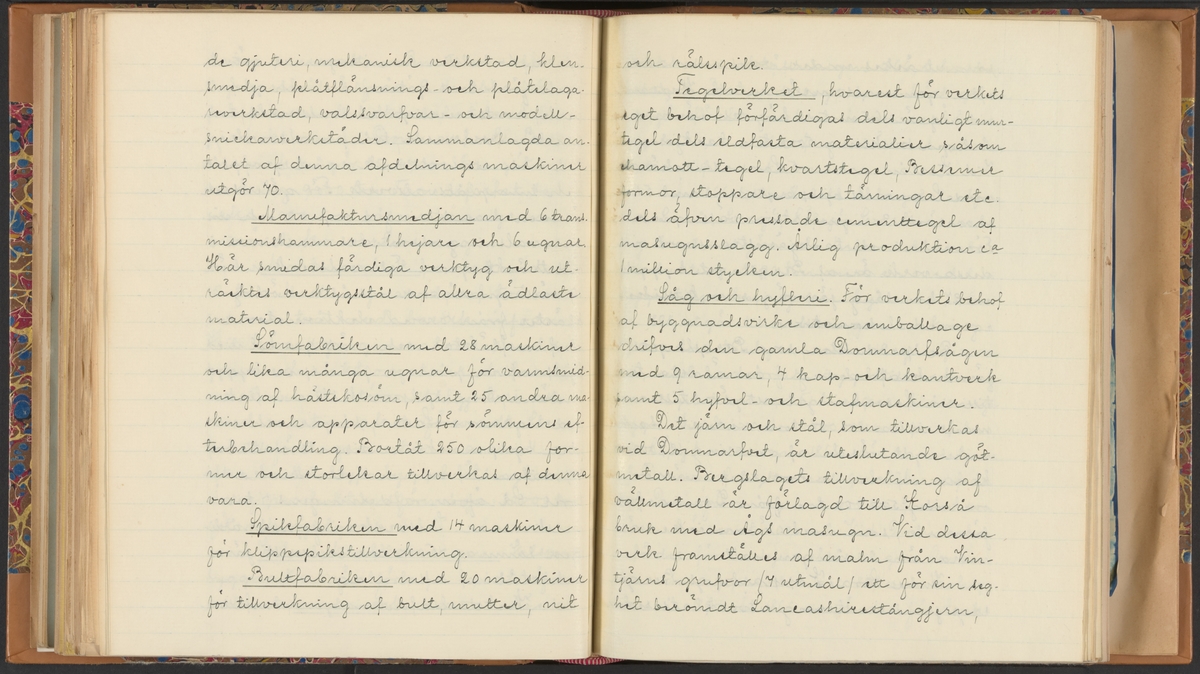 de gjuteri, mekanisk verkstad, klen-
smedja, plåtflänsnings- och plåtslaga-
reverkstad, valssvarfvar- och modell-
snickarverkstäder. Sammanlagda an-
talet af denna afdelnings maskiner
utgör 70.
Manufaktursmedjan med 6 trans-
missionshammare, 1 hejare och 6 ugnar.
Här smedas färdiga verktyg och ut-
räcktes verktygsstål af allra ädlaste
material.
Sömfabriken med 28 maskiner
och lika många ugnar för varmsmid-
ning af hästskosöm, samt 25 andra ma-
skiner och apparater för sömmens ef-
terbehandling. Bortåt 250 olika for-
mer och storlekar tillverkas af denna
vara.
Spikfabriken med 14 maskiner
för klippspikstillverkning.
Bultfabriken med 20 maskiner
för tillverkning af bult, mutter, nit
och rälsspik.
Tegelverket, hvarest för verkets
eget behof förfärdigas dels vanligt mur-
tegel dels eldfasta materialier såsom
chamott-tegel, kvartstegel, Bessemer
formor, stoppare och tärningar etc.
dels äfven pressade cementtegel af
masugnsslagg. Årlig produktion c:a
1 million stycken.
Såg och hyfleri. För verkets behof
af byggnadsvirke och emballage
drifves den gamla Domnarfsågen
med 9 ramar, 4 kap- och kantverk
samt 5 hyfvel- och stafmaskiner.
Det järn och stål, som tillverkas
vid Domnarfvet, är uteslutande göt-
metall. Bergslagets tillverkning af
vällmetall är förlagd till Korså
bruk med Ågs masugn. Vid dessa
verk framställes af malm från Vin-
tjärns grufvor (7 utmål) ett för sin seg-
het berömdt Lancashirestångjern,